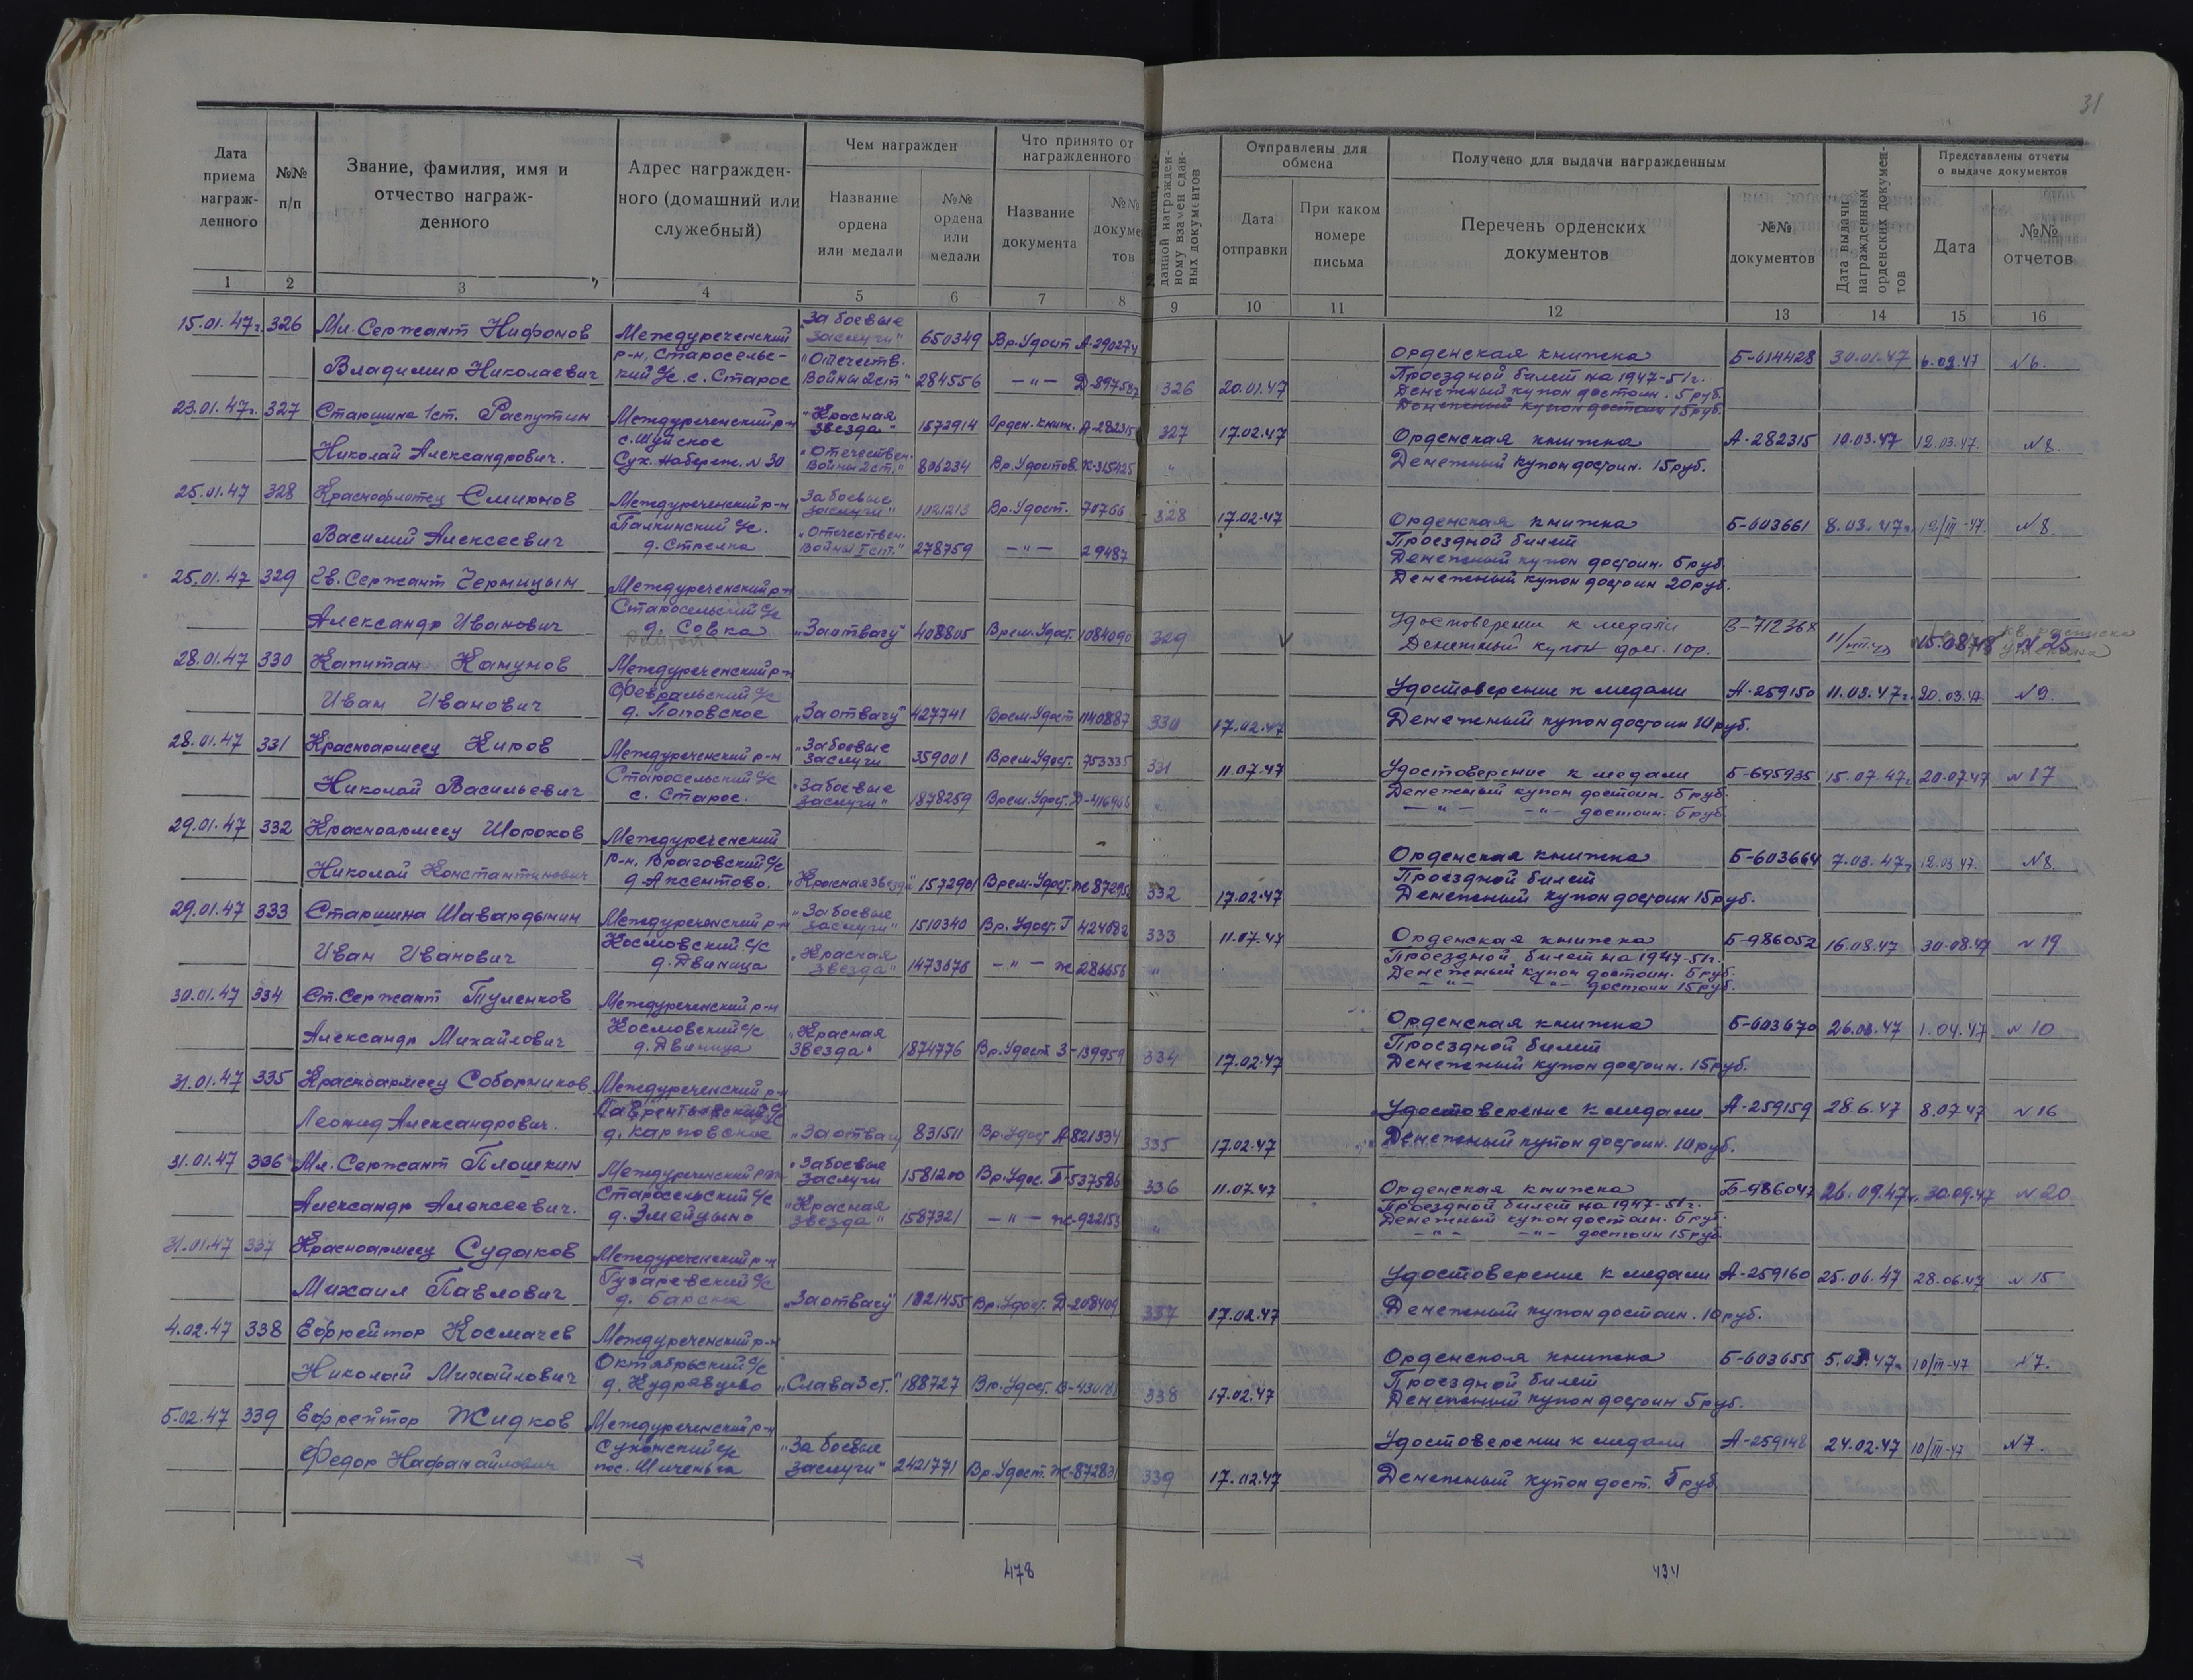 31
Дата приема награжденного
№№ п/п
Звание, фамилия, имя и отчество награжденного
Адрес награжденного (домашний или служебный)
Чем награжден
Название ордена или медали
№№ ордена или медали
Что принято от награжденного
Название документа
№№ документов
данной награжденному взамен сданных документов
Отправлены для обмена
Дата отправки
При каком номере письма
Получено для выдачи награжденным
Перечень орденских документов
№№ документов
Дата выдачи награжденным орденских документов
Представлены отчеты о выдаче документов
Дата
№№ отчетов
1 2 3 4 5 6 7 8 9 10 11 12 13 14 15 16
15.01.47г. 326 Мл. Сержант Нифонов Междуреченский "За боевые заслуги" 650349 Вр. Удост А-290274 Орденская книжка Б-614428 30.01.47 6.03.47 N6.
Владимир Николаевич р-н, Старосельский с/с. с. Старое "Отечеств. Войны 2ст" 284556 —"— Д-897587 326 20.01.47 Проездной билет на 1947-51г.
Денежный купон достоин. 5 руб.
Денежный купон достоин 15 руб.
23.01.47г. 327 Старшина 1ст. Распутин Междуреченский р-н "Красная звезда" 1572914 Орден. книж. А-282315 327 17.02.47 Орденская книжка А-282315 10.03.47 12.03.47. N8.
Николай Александрович. с. Шуйское Сух. Набереж. N 30 "Отечествен. Войны 2ст." 806234 Вр. Удостов. К-315425 " Денежный купон достоин. 15 руб.
25.01.47 328 Краснофлотец Смирнов Междуреченский р-н "За боевые заслуги" 1021213 Вр. Удост. 70766 328 17.02.47 Орденская книжка Б-603661 8.03.47г. 12/III-47. N8.
Василий Алексеевич с/с. д. Стрелка "Отечествен. Войны I ст." 278759 —"— 29487 Проездной билет
Денежный купон достоин. 5 руб.
Денежный купон достоин 20 руб.
25.01.47 329 Гв. Сержант Чермицын Междуреченский р-н
Александр Иванович Старосельский с/с д. Совка "За отвагу" 408805 Врем. Удост. 1084090 329 Удостоверение к медали В-712368 N 25
Денежный купон дост. 10 р.
28.01.47 330 Капитан Камунов Междуреченский р-н Удостоверение к медали А-259150 11.03.47г. 20.03.47 N9.
Иван Иванович Февральский с/с д. Поповское "За отвагу" 427741 Врем. Удост 1140887 330 17.02.47 Денежный купон достоин 10 руб.
28.01.47 331 Красноармеец Киров Междуреченский р-н "За боевые заслуги 359001 Врем. Удост. 753335 331 11.07.47 Удостоверение к медали Б-695935 15.07.47г. 20.07.47 N 17
Николай Васильевич Старосельский с/с с. Старое. "За боевые заслуги" 1878259 Врем. Удост. " Денежный купон достоин. 5 руб.
—"— —"— достоин. 5 руб
29.01.47 332 Красноармеец Шорохов Междуреченский Орденская книжка Б-603664 7.03.47г. 12.03.47. N8.
Николай Константинович р-н, Враговский с/с д. Аксентово. "Красная звезда" 1572901 Врем. Удост. 332 17.02.47 Проездной билет
Денежный купон достоин 15 руб.
29.01.47 333 Старшина Шавардынин Междуреченский р-н "За боевые заслуги" 1510340 Вр. Удост. Г 424082 333 11.07.47 Орденская книжка Б-986052 16.08.47 30.08.47 N 19
Иван Иванович Космовский с/с д. Двиница "Красная звезда" 1473676 —"— ж 286656 " Проездной билет на 1947-51г.
Денежный купон достоин. 5 руб.
—"— —"— достоин 15 руб.
30.01.47 334 Ст. Сержант Туленков Междуреченский р-н Орденская книжка Б-603670 26.03.47 1.04.47 N 10
Александр Михайлович Космовский с/с д. Двиница "Красная звезда" 1874776 Вр. Удост. З-139959 334 17.02.47 Проездной билет
Денежный купон достоин. 15 руб.
31.01.47 335 Красноармеец Соборников Междуреченский р-н Удостоверение к медали А-259159 28.6.47 8.07.47 N 16
Леонид Александрович. Лаврентьевский с/с д. Карповское "За отвагу 831511 Вр. Удост А-821334 335 17.02.47 Денежный купон достоин. 10 руб.
31.01.47 336 Мл. Сержант Плошкин Междуреченский "За боевые заслуги 1581200 Вр. Удос. Б-537586 336 11.07.47 Орденская книжка Б-986047 26.09.47г. 30.09.47 N 20
Александр Алексеевич. Старосельский с/с д. Змейцыно "Красная звезда" 1587321 —"— ж-922153 " Проездной билет на 1947-51г.
Денежный купон достоин. 5 руб.
—"— —"— достоин 15 руб.
31.01.47 337 Красноармеец Судаков Междуреченский р-н Удостоверение к медали А-259160 25.06.47 28.06.47 N 15
Михаил Павлович с/с д. "За отвагу" 1821455 Вр. Удост. Д-208409 337 17.02.47 Денежный купон достоин. 10 руб.
4.02.47 338 Ефрейтор Космачев Междуреченский р-н Орденская книжка Б-603655 5.03.47г. 10/III-47 N7.
Николай Михайлович Октябрьский с/с д. Кудрявцево "Слава 3 ст." 188727 Вр. Удост. 338 17.02.47 Проездной билет
Денежный купон достоин 5 руб.
5.02.47 339 Ефрейтор Жидков Междуреченский р-н Удостоверение к медали А-259148 24.02.47 10/III-47 N7.
Федор Нафанаилович с/с пос. Шиченьга "За боевые заслуги" 2421771 Вр. Удост. Ж-872831 339 17.02.47 Денежный купон дост. 5 руб
478
434